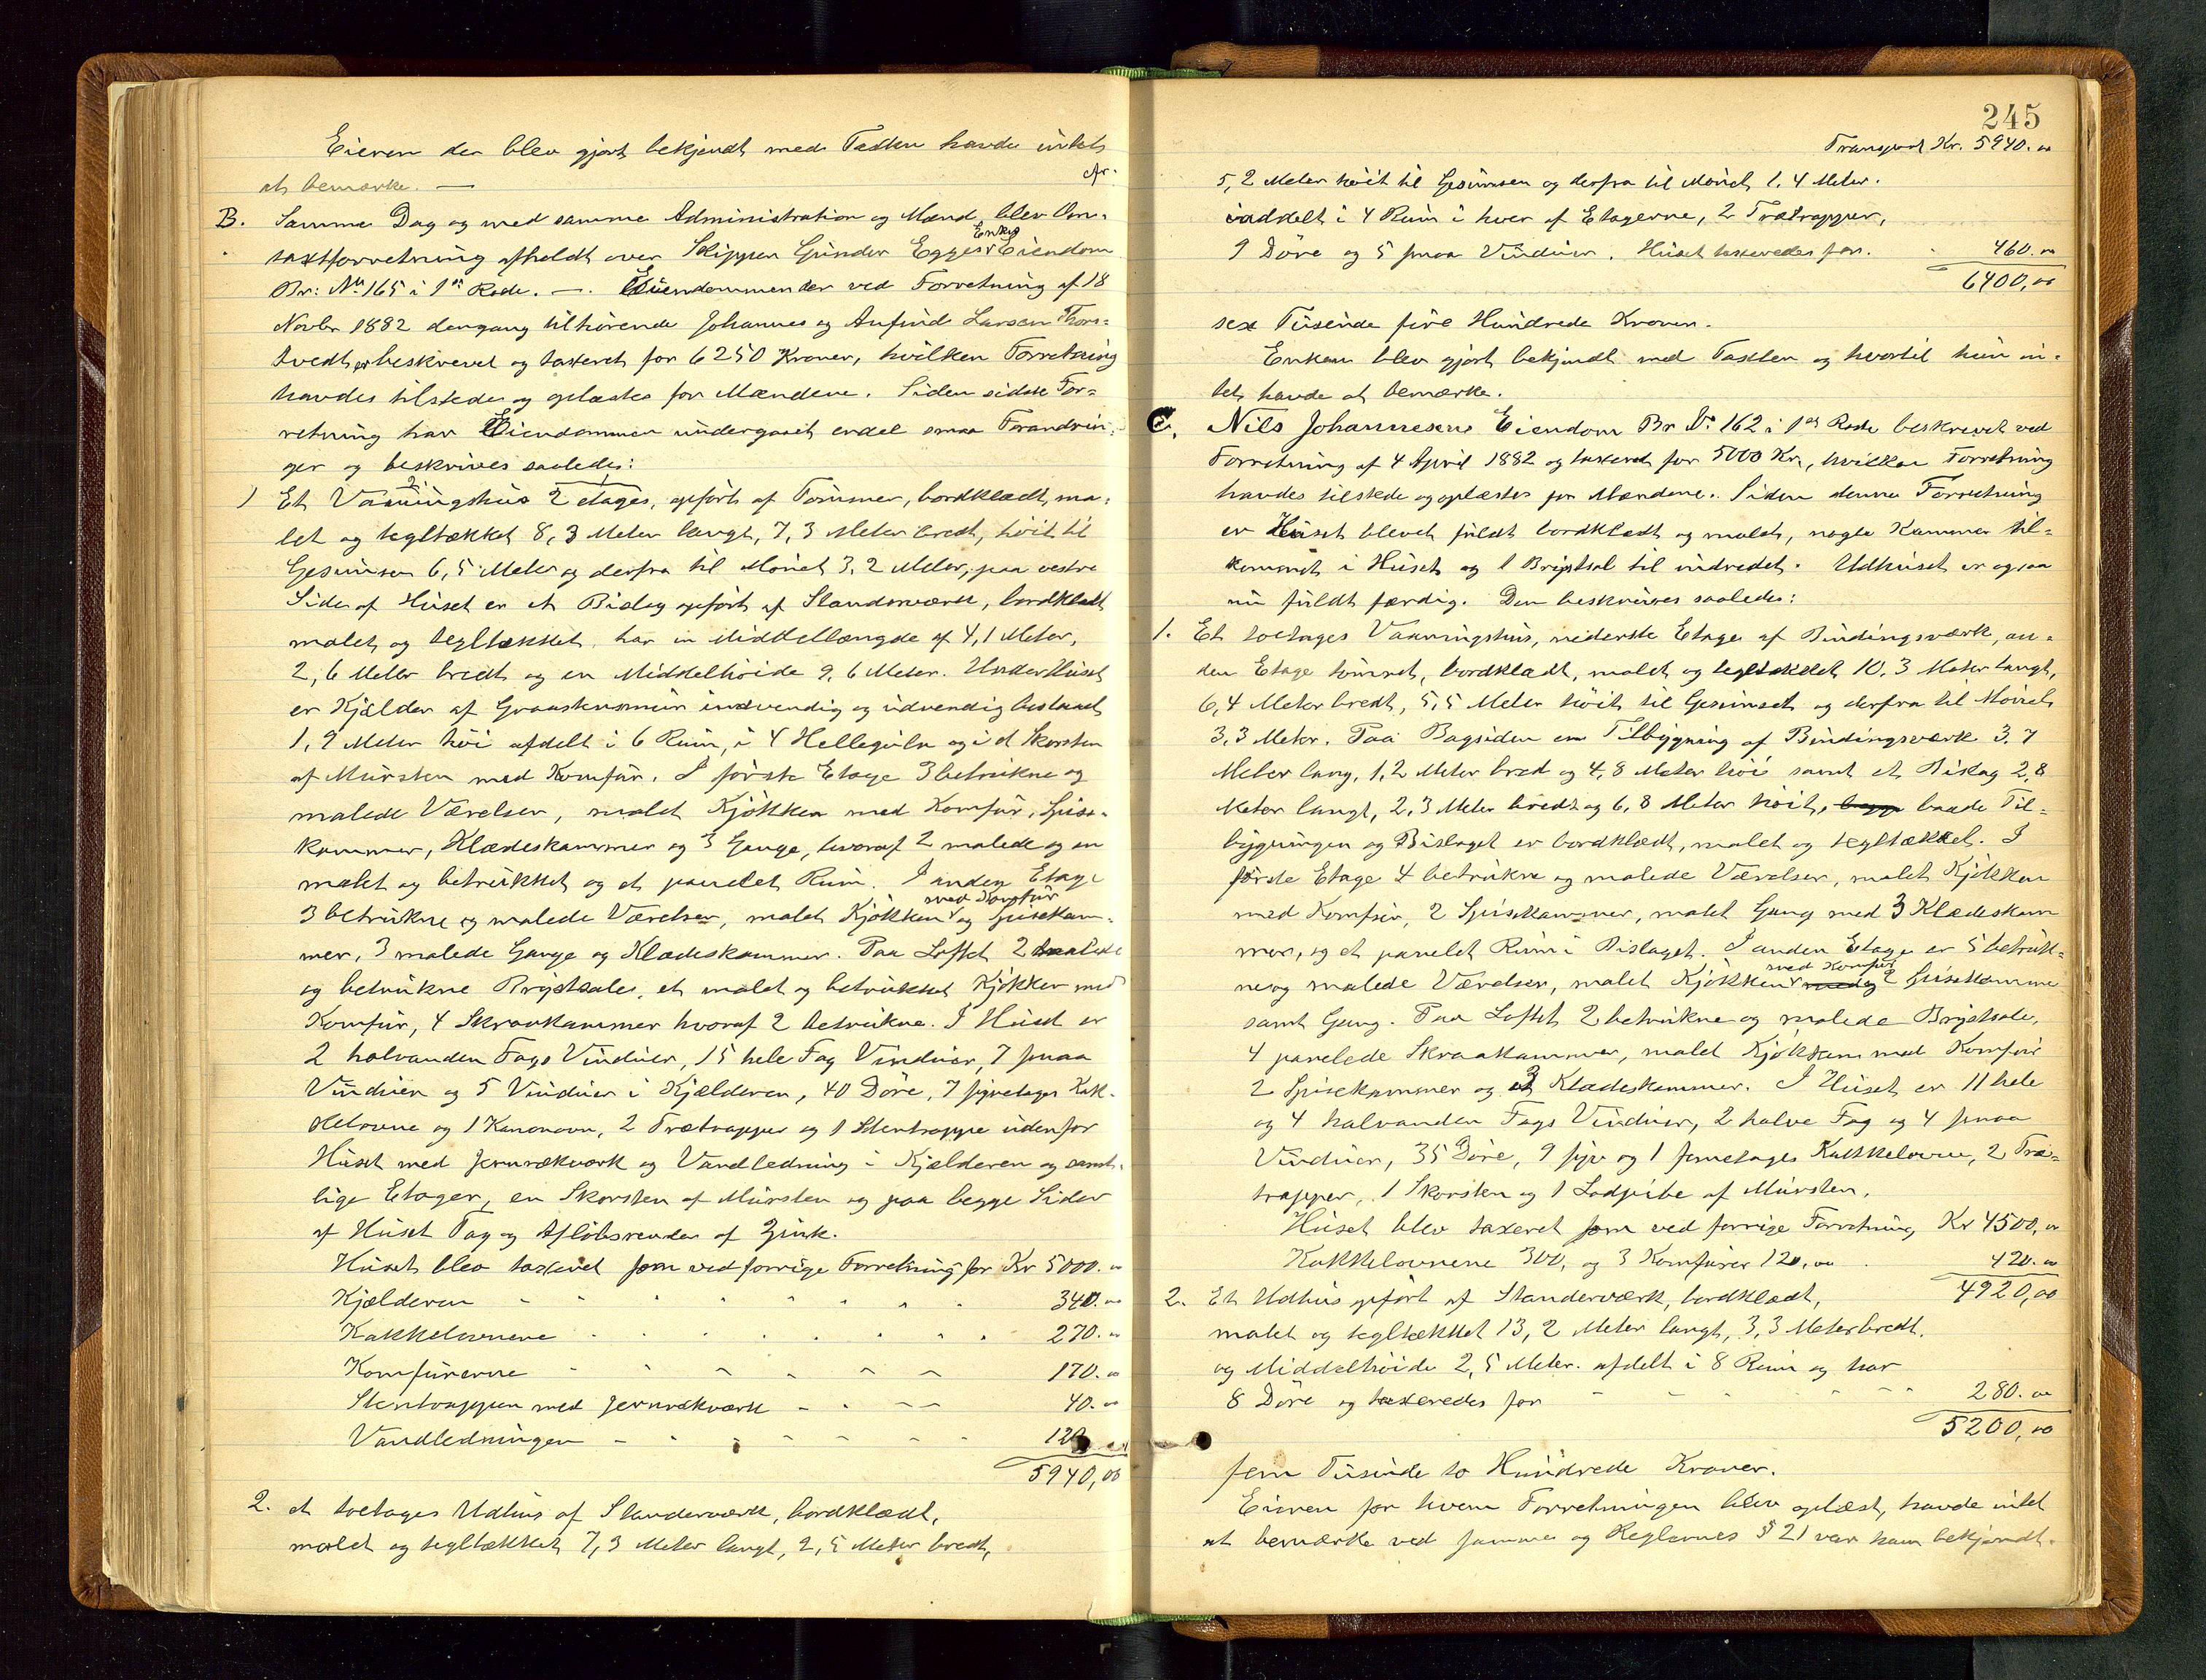 Eieren der blev gjort bekjendt med Taxten havde intet
at bemærke. —
B. Samme Dag og med samme Administration og Mænd, blev Om-
taxtforretning afholdt over Skipper Gunder Egges Enkes Eiendom
Br: No 165 i 1ste Rode. —. Eiendommen der ved Forretning af 18
Novbr 1882 dengang tilhørende Johannes og Anfind Larsen Thors-
tvedt er beskrevet og taxeret for 6250 Kroner, hvilken Forretning
havdes tilstede og oplæstes for Mændene. Siden sidste For-
retning har Eiendommen undergaaet endel smaa Forandrin-
ger og beskrives saaledes:
1) Et Vaaningshus 2 etages, opført af Tømmer, bordklædt, ma-
let og tegltækket 8,3 Meter langt, 7,3 Meter bredt, høit til
Gesimsen 6,5 Meter og derfra til Mønet 3,2 Meter, paa vestre
Side af Huset er et Bislag opført af Standerværk, bordklædt
malet og tegltækket, har en Middellængde af 4,1 Meter,
2,6 Meter bredt og en Middelhøide 9,6 Meter. Under Huset
er Kjælder af Graastensmur indvendig og udvendig
1,9 Meter høi afdelt i 6 Rum, i 4 Hellegulv og i et Skorsten
af Mursten med Komfur. I første Etage 3 betrukne og
malede Værelser, malet Kjøkken med Komfur, Spise-
kammer, Klædeskammer og 3 Gange, hvoraf 2 malede og en
malet og betrukket og et panelet Rum. I anden Etage
3 betrukne og malede Værelser, malet Kjøkken med Komfur og Spisekam-
mer, 3 malede Gange og Klædeskammer. Paa Loftet 2 malede
og betrukne Brystsale, et malet og betrukket Kjøkken med
Komfur, 4 Skraakammer hvoraf 2 betrukne. I Huset er
2 halvanden Fags Vinduer, 15 hele Fag Vinduer, 7 smaa
Vinduer og 5 Vinduer i Kjælderen, 40 Døre, 7 fyretages Kak-
kelovne og 1 Kanonovn, 2 Trætrapper og 1 Stentrappe udenfor
Huset med Jernrækværk og Vandledning i Kjælderen og samt-
lige Etager, en Skorsten af Mursten og paa begge Sider
af Huset Tag og Afløbsrender af Zink.
Huset blev taxeret som ved forrige Forretning for Kr 5000.00
Kjælderen 340.00
Kakkelovnene 270.00
Komfurerne 170.00
Stentrappen med Jernrækværk 40.00
Vandledningen 120.00
5940,00
2. et toetages Udhus af Standerværk, bordklædt,
malet og tegltækket 7,3 Meter langt, 2,5 Meter bredt,
245
Transport Kr. 5940.00
5,2 Meter høit til Gesimsen og derfra til Mønet 1,4 Meter.
inddelt i 4 Rum i hver af Etagerne, 2 Trætrapper,
9 Døre og 5 smaa Vinduer. Huset taxeredes for. 460.00
6400,00
sex Tusinde fire Hundrede Kroner.
Enken blev gjort bekjendt med Taxten og hvortil hun in-
tet havde at bemærke.
C. Nils Johannesens Eiendom Br No 162 i 1ste Rode beskrevet ved
Forretning af 4 April 1882 og taxeret for 5000 Kr, hvilken Forretning
havdes tilstede og oplæstes for Mændene. Siden denne Forretning
er Huset blevet fuldt bordklædt og malet, nogle Kammer til-
kommet i Huset og 1 Brystsal til indredet. Udhuset er ogsaa
nu fuldt færdig. Den beskrives saaledes:
1. Et toetages Vaaningshus, nederste Etage af Bindingsværk, an-
den Etage tømret, bordklædt, malet og tegltækket 10,3 Meter langt,
6,4 Meter bredt, 5,5 Meter høit til Gesimset og derfra til Mønet
3,3 Meter. Paa Bagsiden en Tilbygning af Bindingsværk 3,7
Meter lang, 1,2 Meter bred og 4,8 Meter høi samt et Bislag 2,8
Meter langt, 2,3 Meter bredt og 6,8 Meter høit, begge baade Til-
bygningen og Bislaget er bordklædt, malet og tegltækket. I
første Etage 4 betrukne og malede Værelser, malet Kjøkken
med Komfur, 2 Spisekammer, malet Gang med 3 Klædeskam
mer, og et panelet Rum i Bislaget. I anden Etage er 5 betruk-
ne og malede Værelser, malet Kjøkken med Komfur med og 2 Spisekammer
samt Gang. Paa Loftet 2 betrukne og malede Brystsale,
4 panelede Skraakammer, malet Kjøkken med Komfur
2 Spisekammer og 3 Klædeskammer. I Huset er 11 hele
og 4 halvanden Fags Vinduer, 2 halve Fag og 4 smaa
Vinduer, 35 Døre, 9 fyr og 1 femetages Kakkelovne, 2 Træ-
trapper, 1 Skorsten og 1 Lodpibe af Mursten.
Huset blev taxeret som ved forrige Forretning Kr 4500,00
Kakkelovnene 300, og 3 Komfurer 120,00 420.00
4920,00
2. Et Udhus opført af Standerværk, bordklædt,
malet og tegltækket 13,2 Meter langt, 3,3 Meter bredt,
og Middelhøide 2,5 Meter. afdelt i 8 Rum og har
8 Døre og taxeredes for 280.00
5200,00
fem Tusinde to Hundrede Kroner.
Eieren for hvem Forretningen blev oplæst, havde intet
at bemærke ved samme og Reglernes § 21 var ham bekjendt.